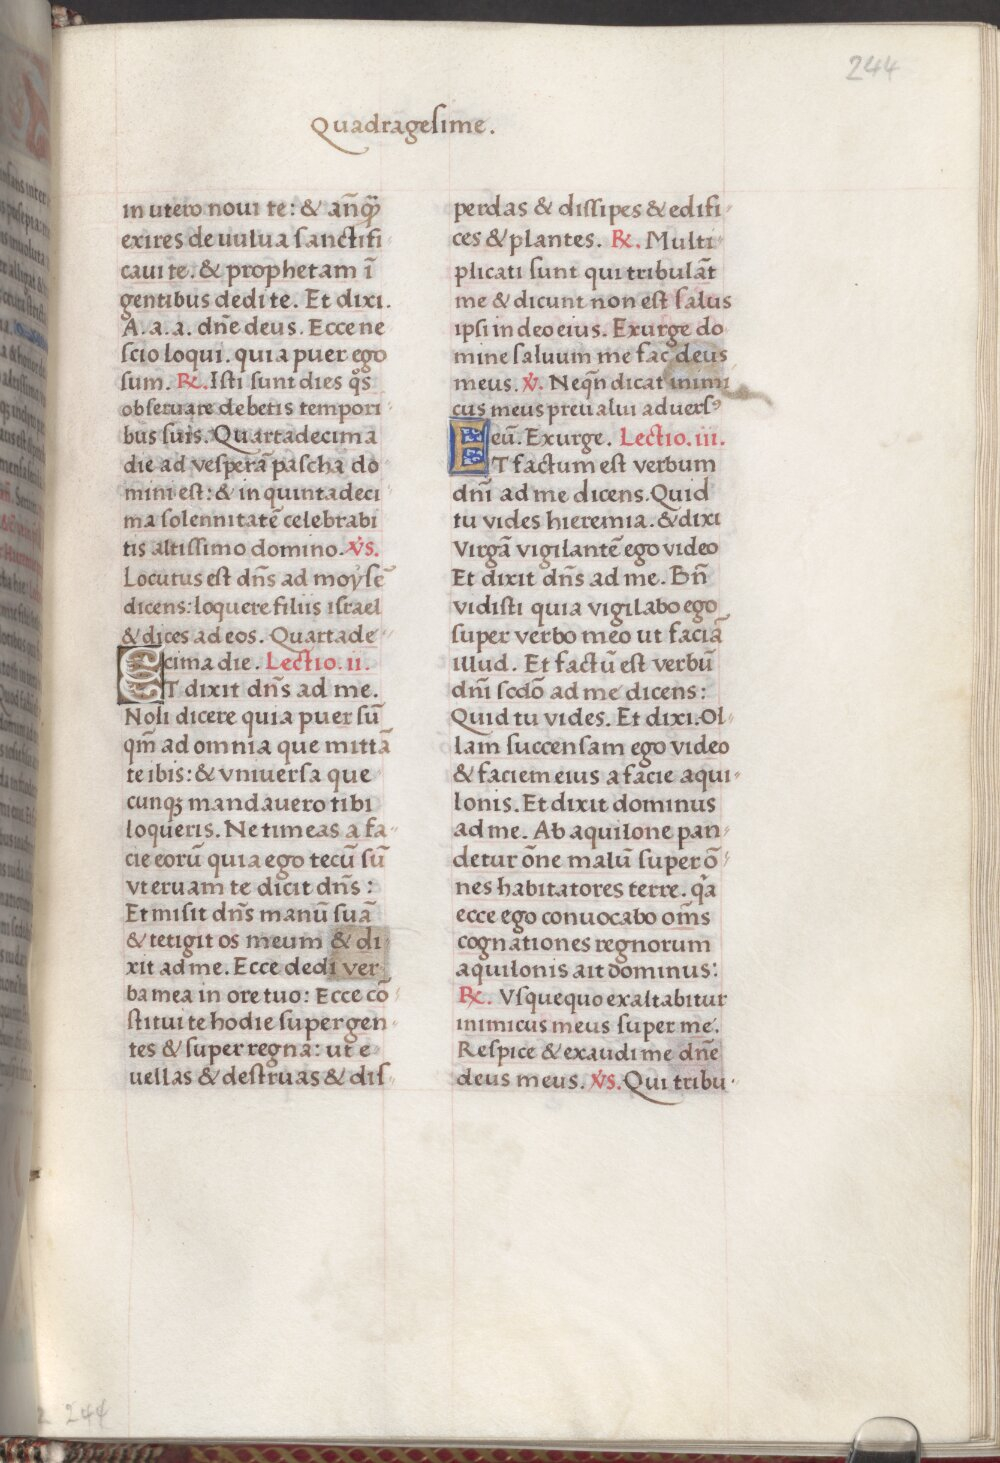 244
Quadragesime.
in utero noui te: & an̄q̄ꝫ
exires de uulua sanctifi-
caui te. & prophetam ī
gentibus dedi te. Et dixi.
A.a.a. dn̄e deus. Ecce ne
scio loqui. quia puer ego
sum. ℞. Isti sunt dies qͦs
obseruare debetis tempori-
bus suis. Quartadecima
die ad vesperā pascha do-
mini est: & in quintadeci-
ma solennitatē celebrabi
tis altissimo domino. v̇s.
Locutus est dn̄s ad moysē
dicens: loquere filiis israel
& dices ad eos. Quartade-
cima die. Lectio. ii.
ET dixit dn̄s ad me.
Noli dicere quia puer sū
qm̄ ad omnia que mittā
te ibis: & vniuersa que
cunqꝫ mandauero tibi
loqueris. Ne timeas a fa-
cie eorū quia ego tecū sū
vt eruam te dicit dn̄s:
Et misit dn̄s manū suā
& tetigit os meum & di
xit ad me. Ecce dedi ver
ba mea in ore tuo: Ecce cō-
stitui te hodie super gen-
tes & super regna: ut e-
uellas & destruas & dis-
perdas & dissipes & edifi-
ces & plantes. ℞. Multi-
plicati sunt qui tribulāt
me & dicunt non est salus
ipsi in deo eius. Exurge do-
mine saluum me fac deus
meus. v̇. Neqn̄ dicat inimi
cus meus preualui aduersꝰ
eū. Exurge. Lectio. iii.
ET factum est verbum
dn̄i ad me dicens. Quid
tu vides hieremia. & dixi
Virgā vigilantē ego video
Et dixit dn̄s ad me. Bn̄
vidisti quia vigilabo ego
super verbo meo ut faciā
illud. Et factū est verbū
dn̄i scdō ad me dicens:
Quid tu vides. Et dixi. Ol-
lam succensam ego video
& faciem eius a facie aqui-
lonis. Et dixit dominus
ad me. Ab aquilone pan-
detur ōne malū super ō-
nes habitatores terre. qͣa
ecce ego conuocabo om̄s
cognationes regnorum
aquilonis ait dominus:
℞. Vsquequo exaltabitur
inimicus meus super me.
Respice & exaudi me dn̄e
deus meus. v̇s. Qui tribu-
244